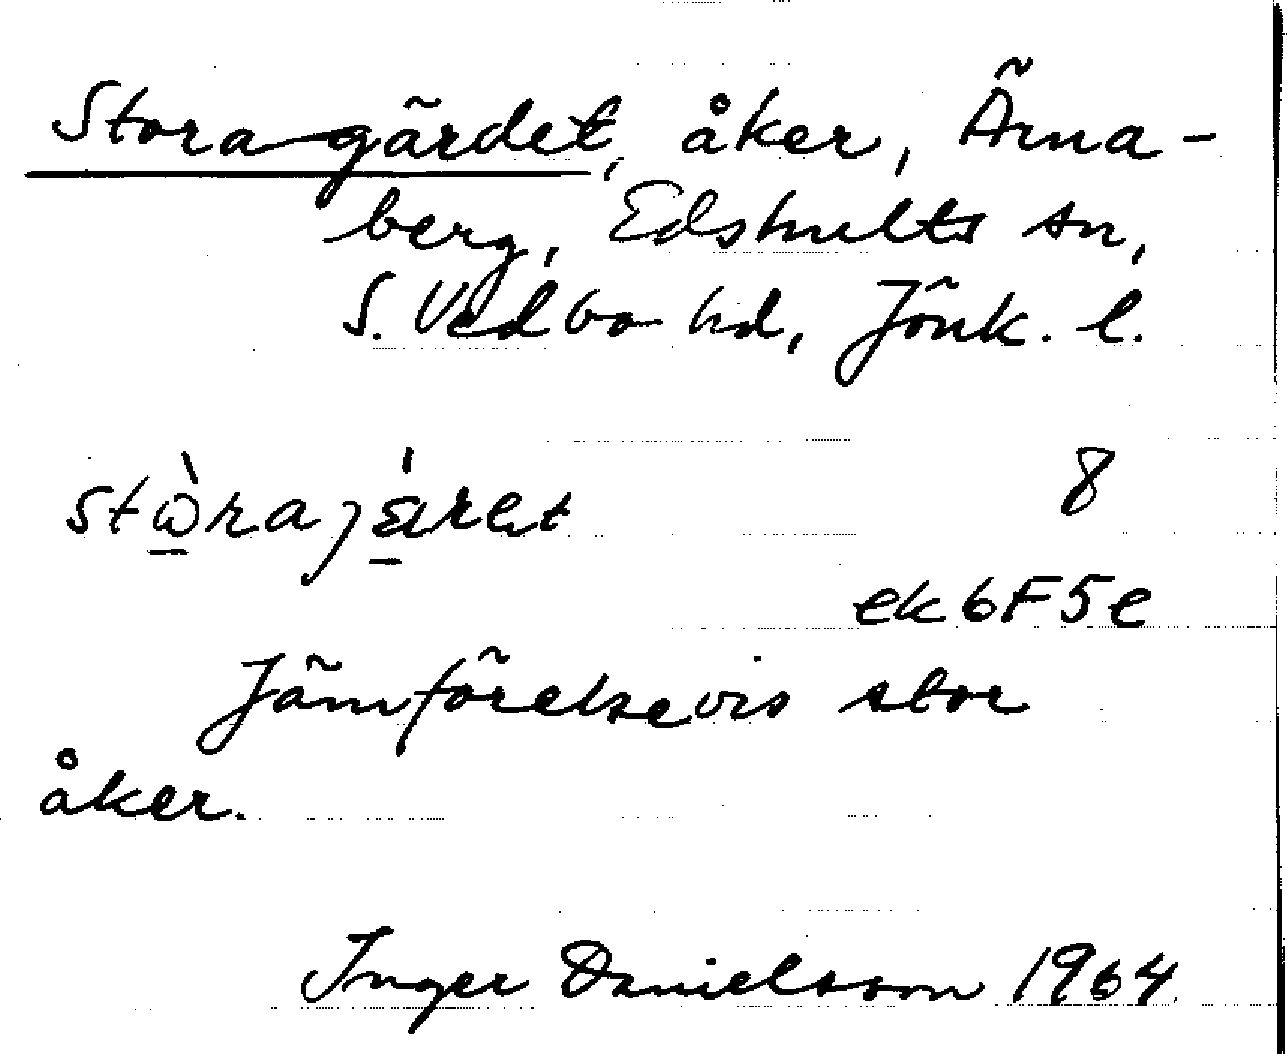 Storagärdet, åker, Ärna-
berg, Edshults sn,
S. Vedbo hd, Jönk. l.
stὼ̠raȷä̠́ret 8
ek6F5e
Jämförelsevis stor
åker.
Inger Danielsson 1964